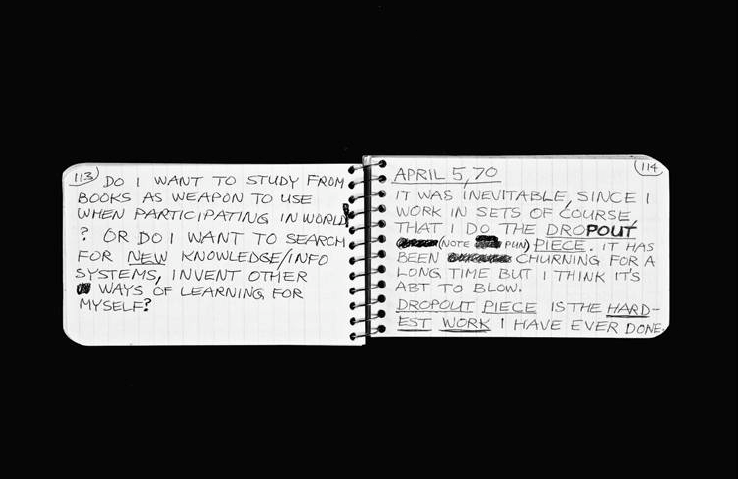 113 DO I WANT TO STUDY FROM
BOOKS AS WEAPON TO USE
WHEN PARTICIPATING IN WORLD
? OR DO I WANT TO SEARCH
FOR NEW KNOWLEDGE/INFO
SYSTEMS, INVENT OTHER
WAYS OF LEARNING FOR
MYSELF?
114
APRIL 5,70
IT WAS INEVITABLE, SINCE I
WORK IN SETS OF COURSE,
THAT I DO THE DROPOUT
(NOTE PUN) PIECE. IT HAS
BEEN CHURNING FOR A
LONG TIME BUT I THINK IT'S
ABT TO BLOW.
DROPOUT PIECE IS THE HARD-
EST WORK I HAVE EVER DONE.